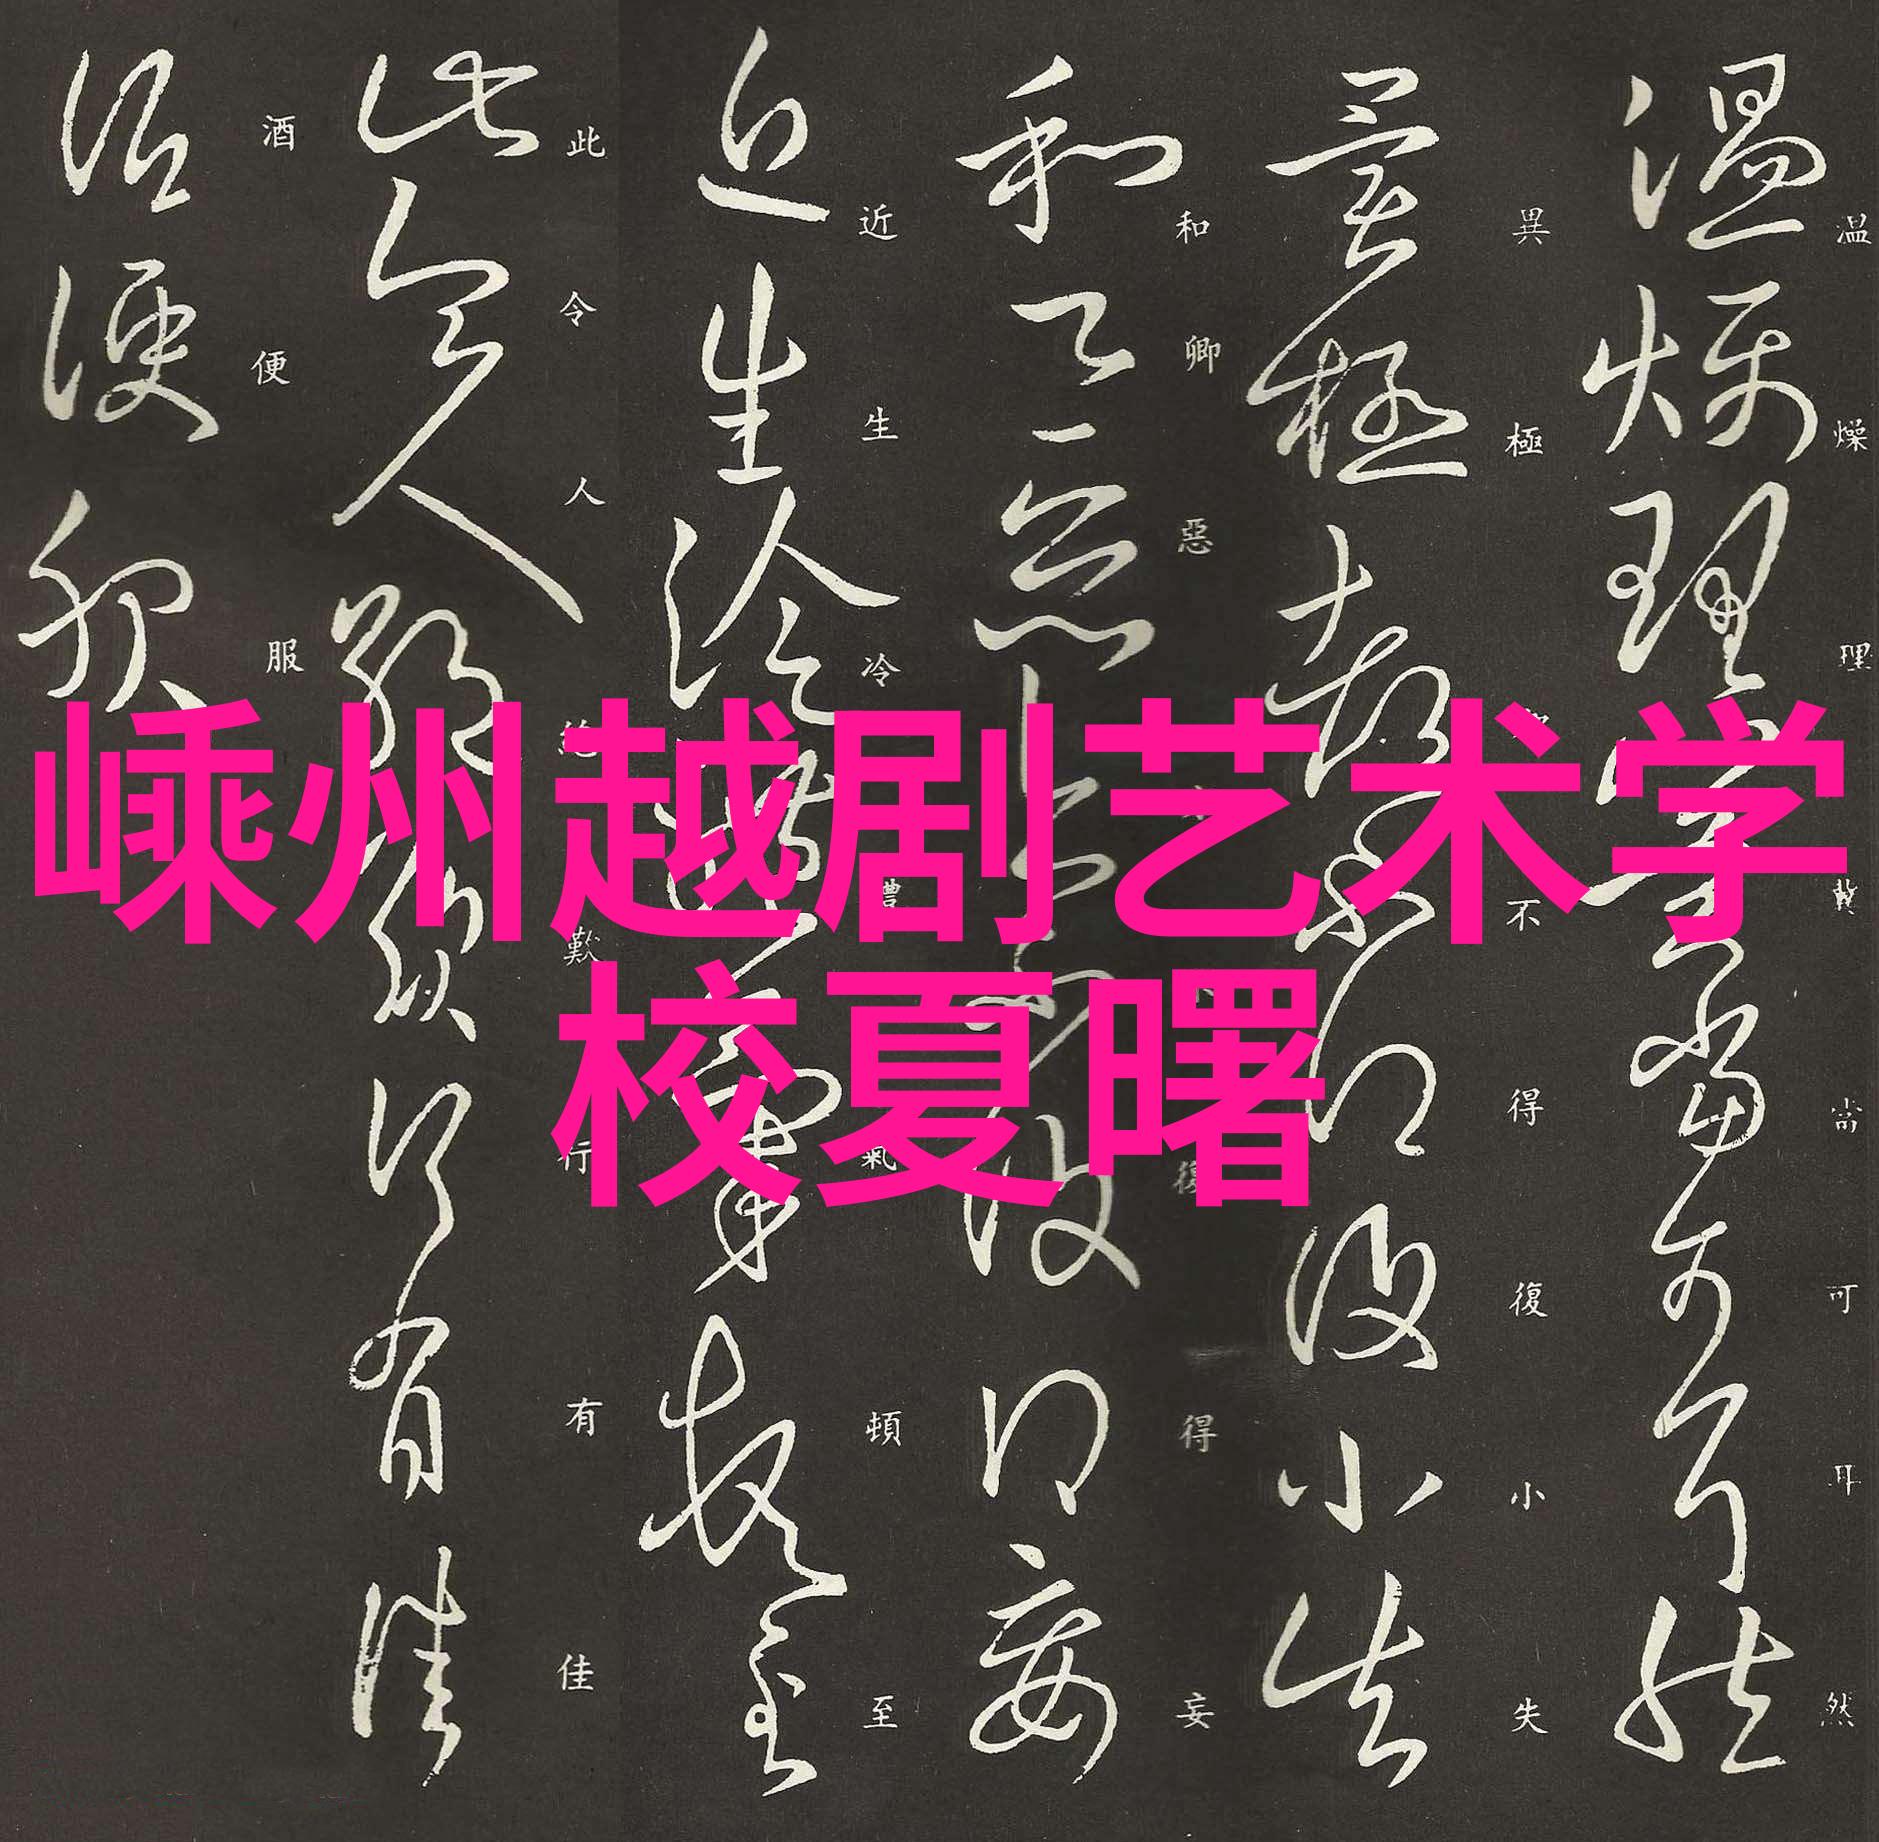 嵊州越剧艺术学
校夏曙
温燥理冀當可耳然
異極都不得復小失
和卿惡不復得妄
近生冷體氣頓至
此令人絶歎行有佳
酒便服